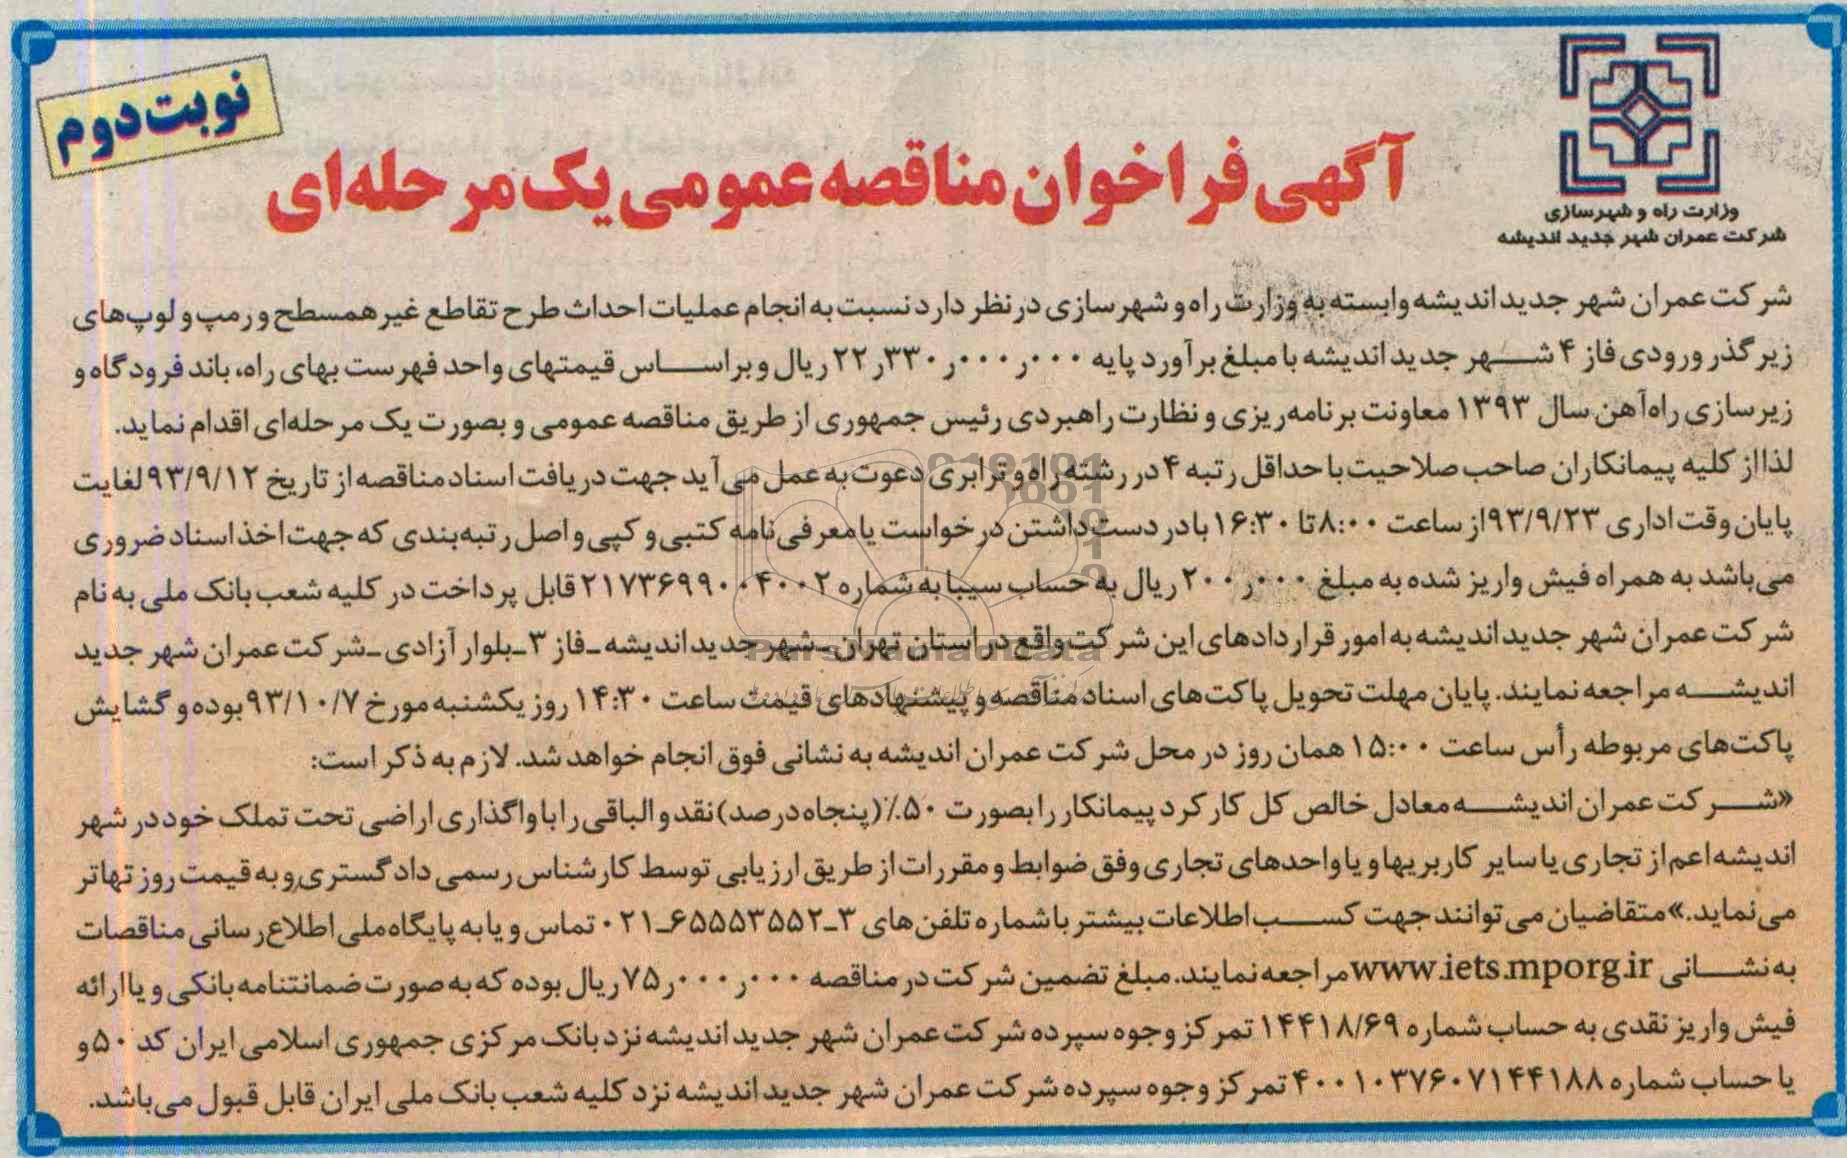 نوبت دوم
وزارت راه و شهرسازی
شرکت عمران شهر جدید اندیشه
آگهی فراخوان مناقصه عمومی یک مرحله‌ای
شرکت عمران شهر جدید اندیشه وابسته به وزارت راه و شهرسازی در نظر دارد نسبت به انجام عملیات احداث طرح تقاطع غیر همسطح و رمپ و لوپ‌های
زیر گذر ورودی فاز ۴ شهر جدید اندیشه با مبلغ برآورد پایه ۲۲ر۳۳۰ر۰۰۰ر۰۰۰ ریال و بر اساس قیمتهای واحد فهرست بهای راه، باند فرودگاه و
زیرسازی راه‌آهن سال ۱۳۹۳ معاونت برنامه‌ریزی و نظارت راهبردی رئیس جمهوری از طریق مناقصه عمومی و بصورت یک مرحله‌ای اقدام نماید.
لذا از کلیه پیمانکاران صاحب صلاحیت با حداقل رتبه ۴ در رشته راه و ترابری دعوت به عمل می‌آید جهت دریافت اسناد مناقصه از تاریخ ۹۳/۹/۱۲ لغایت
پایان وقت اداری ۹۳/۹/۲۳ از ساعت ۸:۰۰ تا ۱۶:۳۰ با در دست داشتن درخواست یا معرفی نامه کتبی و کپی و اصل رتبه‌بندی که جهت اخذ اسناد ضروری
می‌باشد به همراه فیش واریز شده به مبلغ ۲۰۰ر۰۰۰ ریال به حساب سیبا به شماره ۲۱۷۳۶۹۹۰۰۴۰۰۲ قابل پرداخت در کلیه شعب بانک ملی به نام
شرکت عمران شهر جدید اندیشه به امور قراردادهای این شرکت واقع در استان تهران ـ شهر جدید اندیشه ـ فاز ۳ ـ بلوار آزادی ـ شرکت عمران شهر جدید
اندیشه مراجعه نمایند. پایان مهلت تحویل پاکت‌های اسناد مناقصه و پیشنهادهای قیمت ساعت ۱۴:۳۰ روز یکشنبه مورخ ۹۳/۱۰/۷ بوده و گشایش
پاکت‌های مربوطه رأس ساعت ۱۵:۰۰ همان روز در محل شرکت عمران اندیشه به نشانی فوق انجام خواهد شد. لازم به ذکر است:
«شرکت عمران اندیشه معادل خالص کل کارکرد پیمانکار را بصورت ۵۰٪ (پنجاه درصد) نقد و الباقی را با واگذاری اراضی تحت تملک خود در شهر
اندیشه اعم از تجاری یا سایر کاربریها و یا واحدهای تجاری وفق ضوابط و مقررات از طریق ارزیابی توسط کارشناس رسمی دادگستری و به قیمت روز تهاتر
می‌نماید.» متقاضیان می‌توانند جهت کسب اطلاعات بیشتر با شماره تلفن‌های ۳ـ۶۵۵۵۳۵۵۲ـ۰۲۱ تماس و یا به پایگاه ملی اطلاع‌رسانی مناقصات
به نشانی www.iets.mporg.ir مراجعه نمایند. مبلغ تضمین شرکت در مناقصه ۷۵ر۰۰۰ر۰۰۰ ریال بوده که به صورت ضمانتنامه بانکی و یا ارائه
فیش واریز نقدی به حساب شماره ۱۴۴۱۸/۶۹ تمرکز وجوه سپرده شرکت عمران شهر جدید اندیشه نزد بانک مرکزی جمهوری اسلامی ایران کد ۵۰ و
یا حساب شماره ۴۰۰۱۰۳۷۶۰۷۱۴۴۱۸۸ تمرکز وجوه سپرده شرکت عمران شهر جدید اندیشه نزد کلیه شعب بانک ملی ایران قابل قبول می‌باشد.